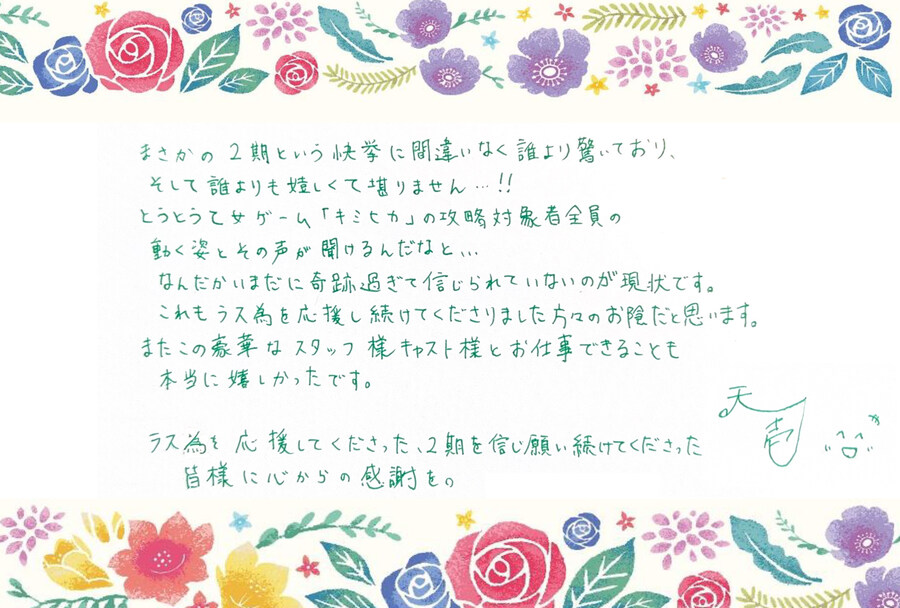 まさかの2期という快挙に間違いなく誰より驚いており、
そして誰よりも嬉しくて堪りません…!!
とうとう乙女ゲーム「キミヒカ」の攻略対象者全員の
動く姿とその声が聞けるんだなと…
なんだかいまだに奇跡過ぎて信じられていないのが現状です。
これもラス為を応援し続けてくださりました方々のお陰だと思います。
またこの豪華なスタッフ様キャスト様とお仕事できることも
本当に嬉しかったです。
天壱
ラス為を応援してくださった、2期を信じ願い続けてくださった
皆様に心からの感謝を。